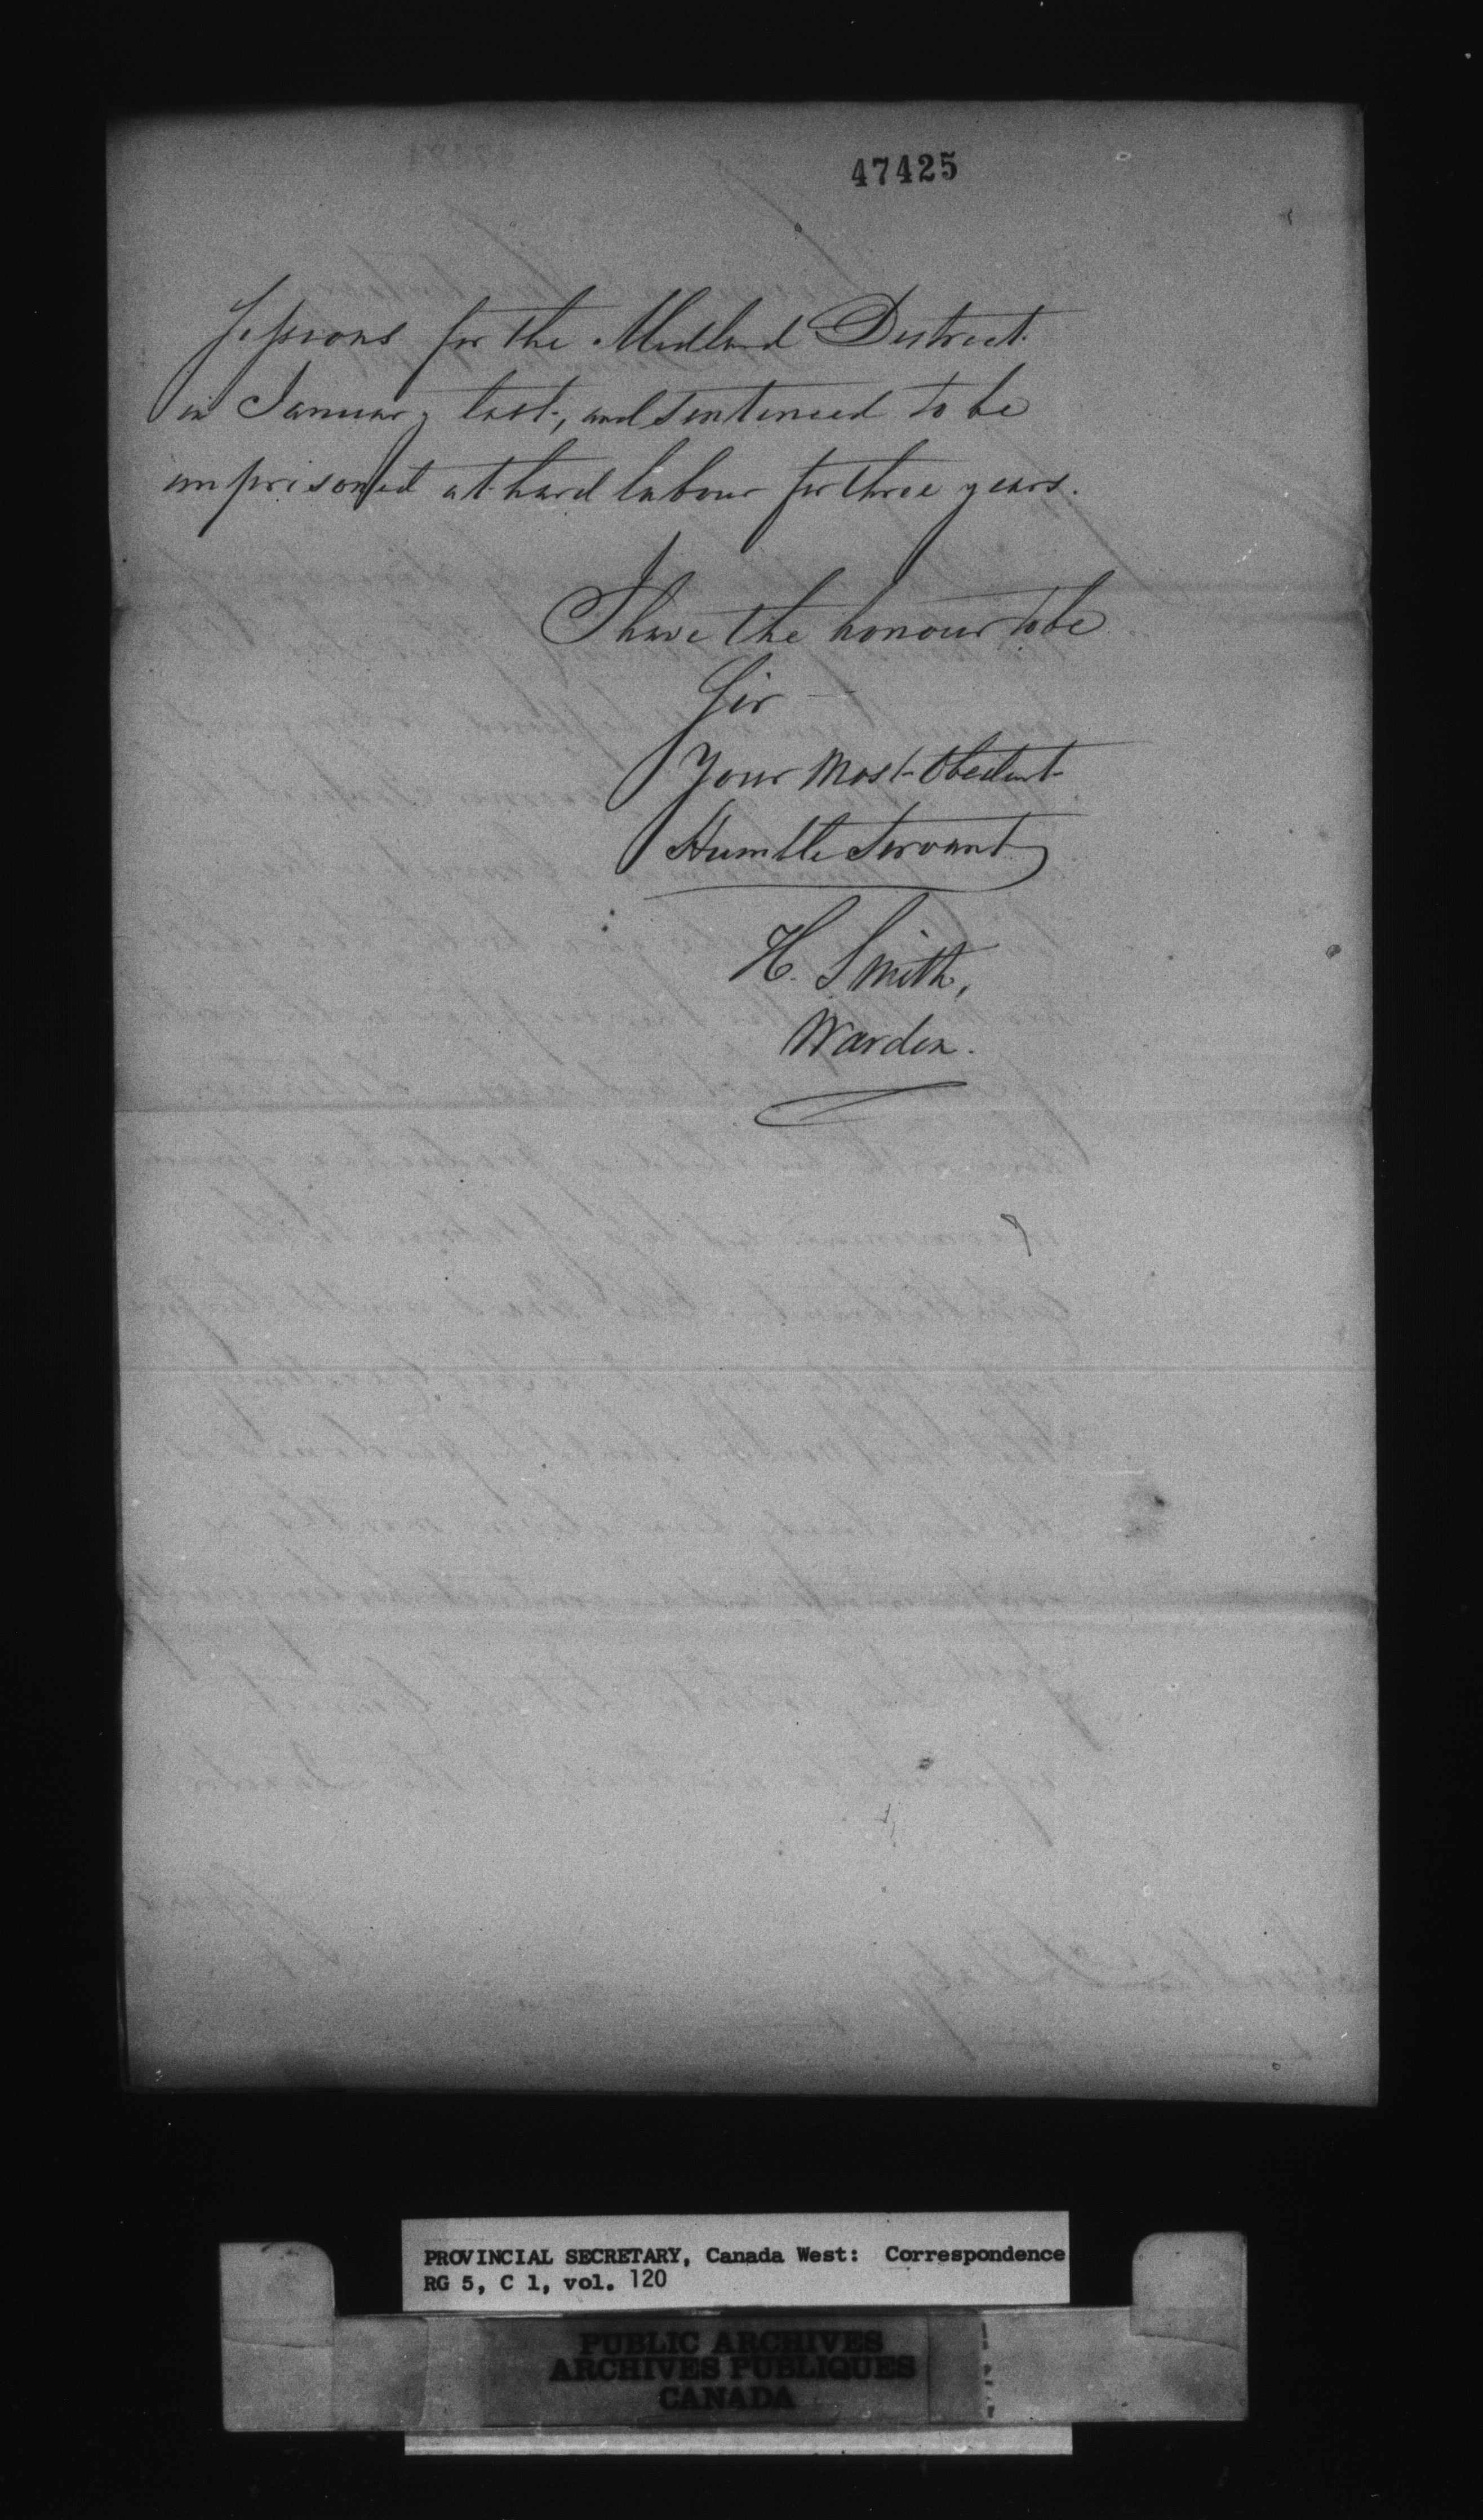 47425
Sessions for the Midland District
in January last, and sentenced to be
imprisoned at hard labour for three years.
I have the honour to be
Sir
Your Most Obedient
Humble Servant
H. Smith,
Warden.
PROVINCIAL SECRETARY, Canada West: Correspondence
RG 5, C 1, vol. 120
PUBLIC ARCHIVES
ARCHIVES PUBLIQUES
CANADA